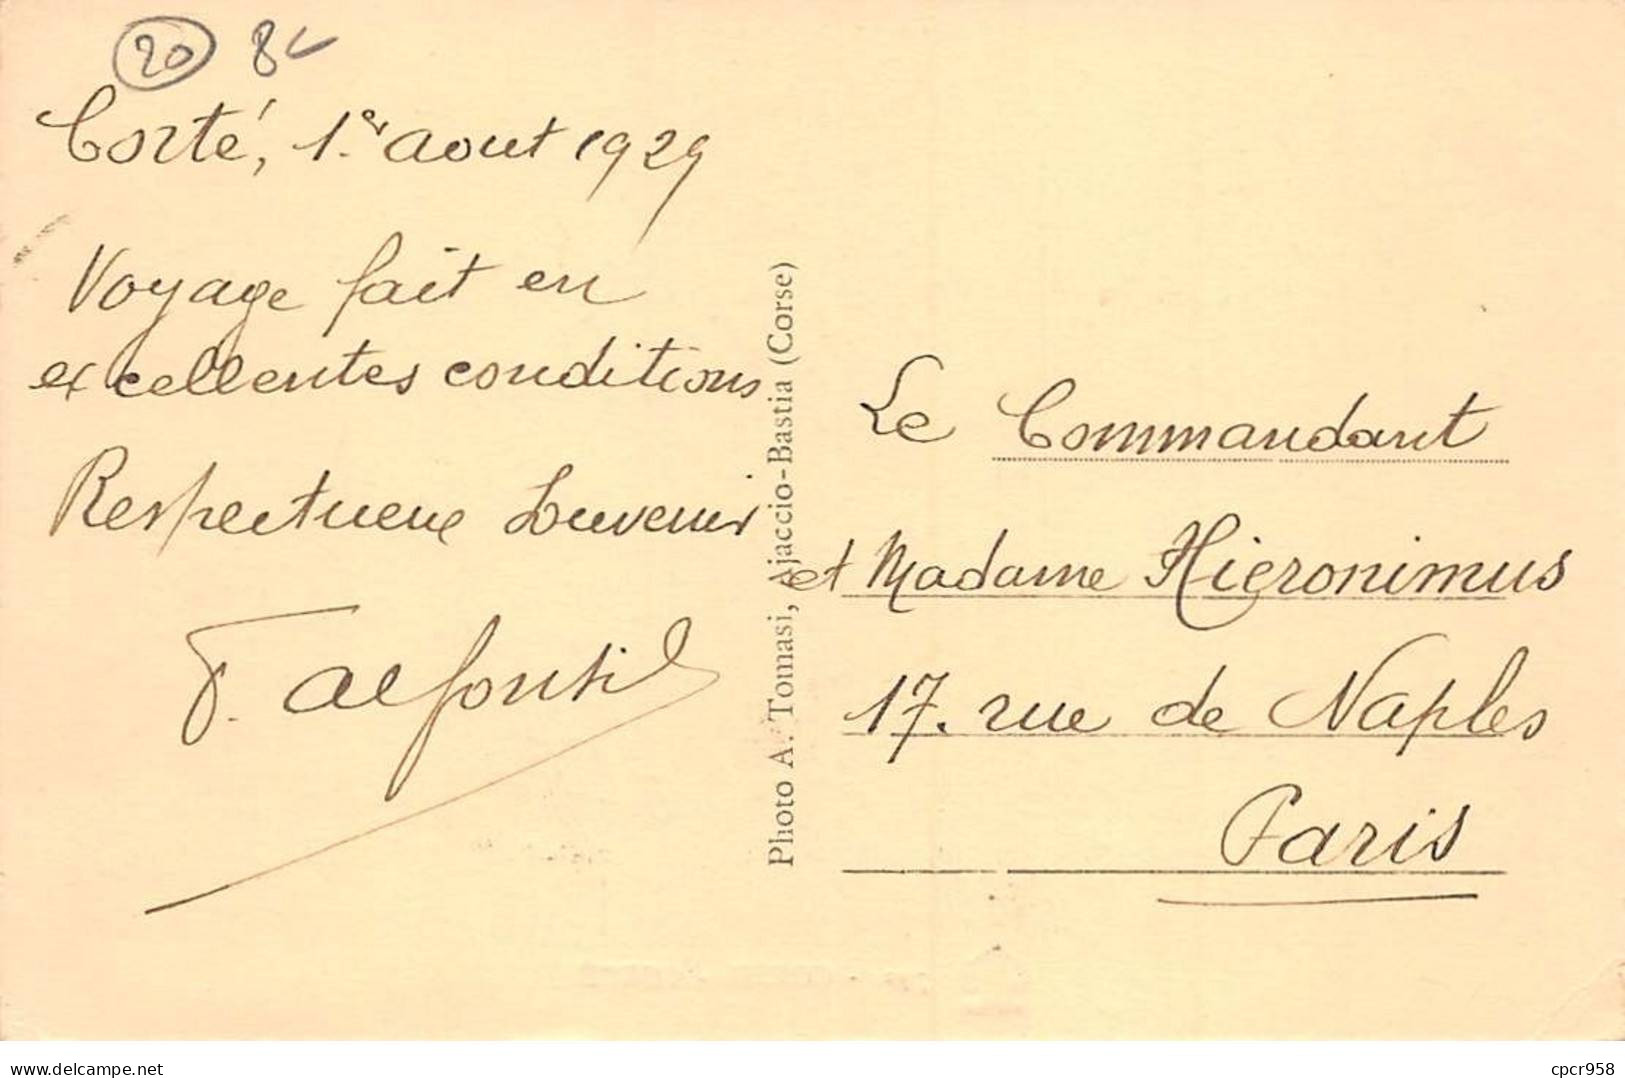 20 8
Corté, 1er aout 1929
Voyage fait en
excellentes conditions
Respectueux Souvenir
Photo A. Tomasi, Ajaccio-Bastia (Corse)
Le Commandant
et Madame Hieronimus
17. rue de Naples
Paris
www.delcampe.net
cpcr958